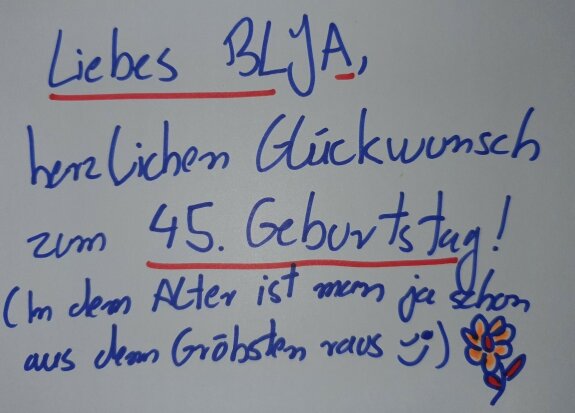 Liebes BLJA,
herzlichen Glückwunsch
zum 45. Geburtstag!
(In dem Alter ist man ja schon
aus dem Gröbsten raus ;))